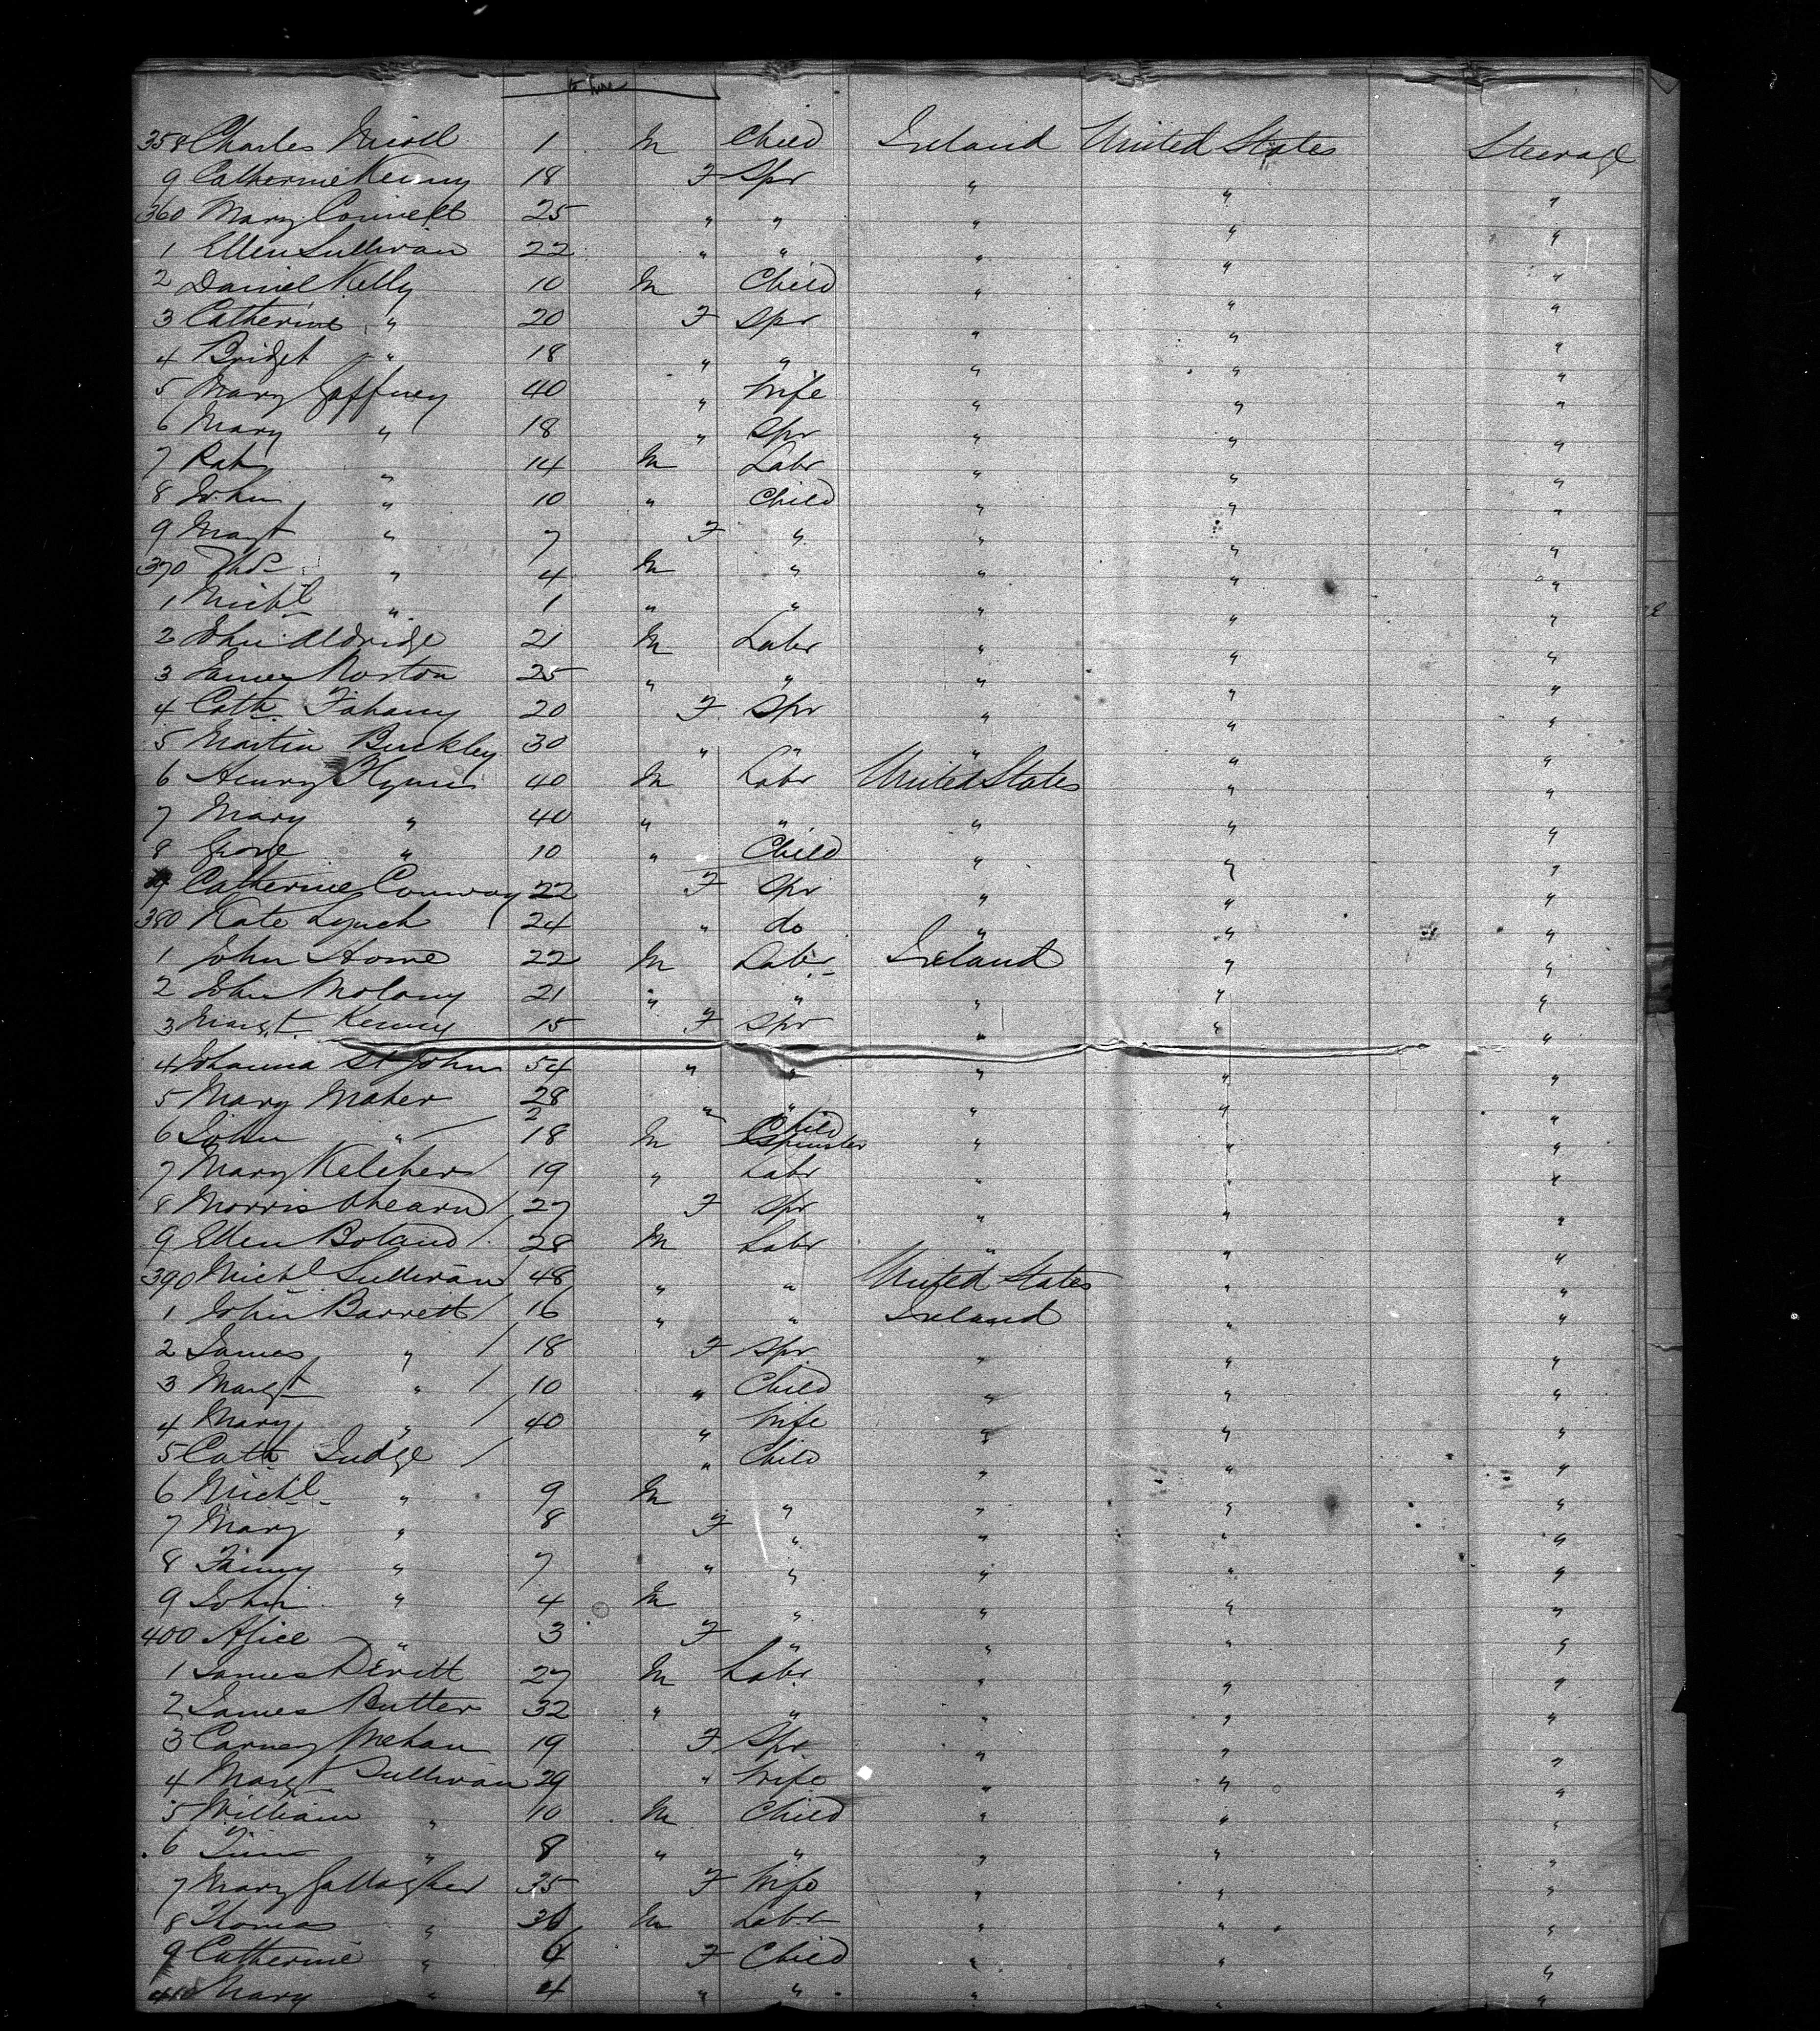 358 Charles Nicoll 1 M Child Ireland United States Steerage
9 Catherine Kenny 18 F Spr " " "
360 Mary Connell 25 " " " " "
1 Ellen Sullivan 22 " " " " "
2 Daniel Kelly 10 M Child " " "
3 Catherine " 20 F Spr " " "
4 Bridget " 18 " " " " "
5 Mary Gaffney 40 " Wife " " "
6 Mary " 18 " Spr " " "
7 Pat " 14 M Labr " " "
8 John " 10 " Child " " "
9 Margt " 7 F " " " "
370 Thos " 4 M " " " "
1 Michl " 1 " " " " "
2 John Aldridge 21 M Labr " " "
3 James Norton 25 " " " " "
4 Cath Fahany 20 F Spr " " "
5 Martin Buckley 30 " " " " "
6 Henry Flynn 40 M Labr United States " "
7 Mary " 40 " " " " "
8 George " 10 " Child " " "
9 Catherine Conway 22 F Spr " " "
380 Kate Lynch 24 " do " " "
1 John Howe 22 M Labr Ireland " "
2 John Molony 21 " " " " "
3 Margt Kenny 15 F Spr " " "
4 Johanna St John 54 " " " " "
5 Mary Maher 28 " " " " "
6 John " / 2 18 M Child Spinster " " "
7 Mary Keleher / 19 " Labr " " "
8 Morris Ahearn / 27 F Spr " " "
9 Ellen Boland / 28 M Labr " " "
390 Michl Sullivan / 48 " " United States " "
1 John Barrett / 16 " " Ireland " "
2 James " / 18 F Spr " " "
3 Margt " / 10 " Child " " "
4 Mary " / 40 " Wife " " "
5 Cath Judge / " Child " " "
6 Michl " 9 M " " " "
7 Mary " 8 F " " " "
8 Fanny " 7 " " " " "
9 John " 4 M " " " "
400 Alice " 3 F " " " "
1 James Devitt 27 M Labr " " "
2 James Butter 32 " " " " "
3 Carney Mehan 19 F Spr " " "
4 Margt Sullivan 29 " Wife " " "
5 William " 10 M Child " " "
6 Tim " 8 " " " " "
7 Mary Gallagher 35 F Wife " " "
8 Thomas " 36 M Labr " " "
9 Catherine " 6 F Child " " "
410 Mary " 4 " " " " "